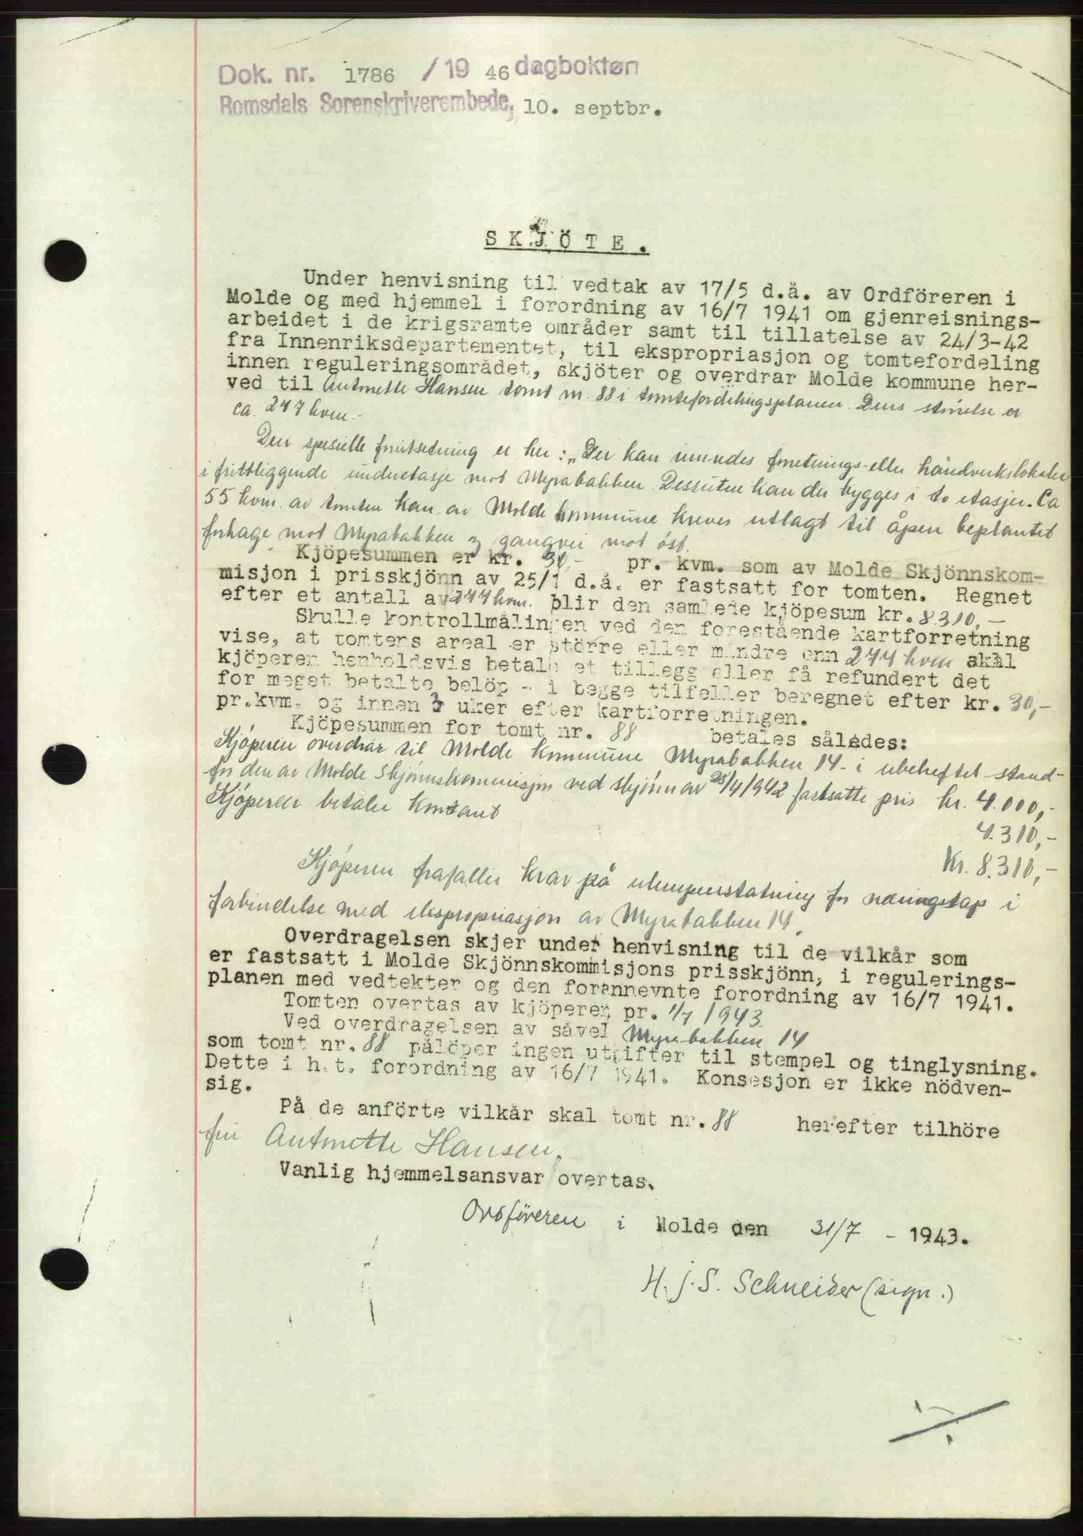 Dok. nr. 1786 / 19 46 dagboken
Romsdals Sorenskriverembede, 10. septbr.
SKJÖTE.
Under henvisning til vedtak av 17/5 d.å. av Ordföreren i
Molde og med hjemmel i forordning av 16/7 1941 om gjenreisnings-
arbeidet i de krigsramte områder samt til tillatelse av 24/3-42
fra Innenriksdepartementet, til ekspropriasjon og tomtefordeling
innen reguleringsområdet, skjöter og overdrar Molde kommune her-
ved til Antonette Hansen tomt nr. 88 i tomtefordelingsplanen. Dens störrelse er
ca. 277 kvm.
Den spesielle forutsetning er her: „Der kan innredes forretnings- eller håndverkslokaler
i frittliggende underetasje mot Myrabakken. Dessuten kan der bygges i to etasjer. Ca
55 kvm. av tomten kan av Molde kommune kreves utlagt til åpen beplantet
forhage mot Myrabakken og gangvei mot öst.
Kjöpesummen er kr. 30,- pr. kvm. som av Molde Skjönnskom-
misjon i prisskjönn av 25/1 d.å. er fastsatt for tomten. Regnet
efter et antall av 277 kvm. blir den samlede kjöpesum kr. 8310,-
Skulle kontrollmålingen ved den forestående kartforretning
vise, at tomtens areal er större eller mindre enn 277 kvm skal
kjöperen henholdsvis betale et tillegg eller få refundert det
for meget betalte belöp - i begge tilfeller beregnet efter kr. 30,-
pr.kvm. og innen 3 uker efter kartforretningen.
Kjöpesummen for tomt nr. 88 betales således:
Kjöperen overdrar til Molde kommune Myrabakken 14 - i ubeheftet stand -
for den av Molde Skjönnskommisjon ved skjönn av 28/4 1942 fastsatte pris kr. 4.000,-
Kjöperen betaler kontant 4.310,-
Kr. 8.310,-
Kjöperen frafaller krav på ulempeerstatning for næringstap i
forbindelse med ekspropriasjon av Myrabakken 14.
Overdragelsen skjer under henvisning til de vilkår som
er fastsatt i Molde Skjönnskommisjons prisskjönn, i regulerings-
planen med vedtekter og den forannevnte forordning av 16/7 1941.
Tomten overtas av kjöperen pr. 1/7 1943
Ved overdragelsen av såvel Myrabakken 14
som tomt nr. 88 pålöper ingen utgifter til stempel og tinglysning.
Dette i h.t. forordning av 16/7 1941. Konsesjon er ikke nödven-
sig.
På de anförte vilkår skal tomt nr. 88 herefter tilhöre
fru Antonette Hansen.
Vanlig hjemmelsansvar overtas.
Ordföreren i Molde den 31/7 - 1943.
H. J. S. Schneider (sign.)